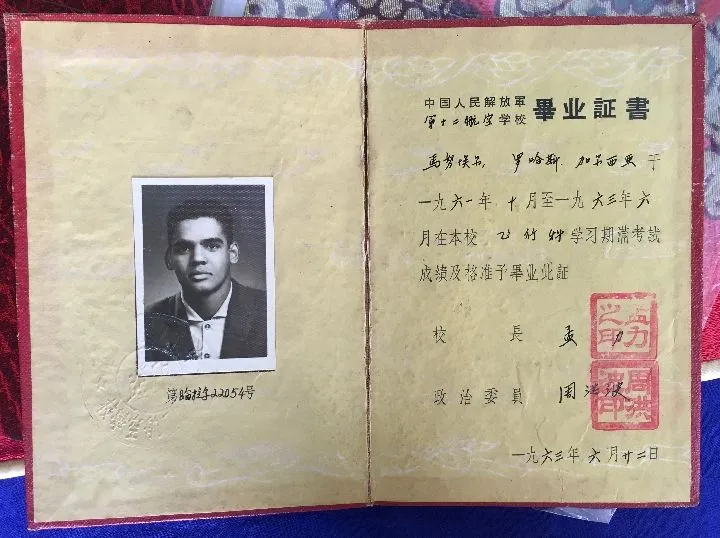 字22054号
中国人民解放軍
第十二航空学校
畢业証書
馬努埃尔, 罗哈斯. 加尔西亚于
一九六一年十月至一九六三年六
月在本校飞行科学习期滿考試
成績及格准予畢业此証
校長 孟力
政治委員 周洪波
一九六三年六月廿二日
孟力之印
周洪波印